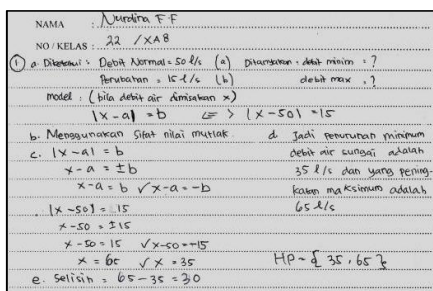 NAMA : Nurdina F F
NO / KELAS : 22 / XA8
① a. Diketahui : Debit Normal = 50 l/s (a) Ditanyakan : debit minim = ?
Perubahan = 15 l/s (b) debit max = ?
model : (bila debit air dimisalkan x)
|x - a| = b <=> |x - 50| = 15
b. Menggunakan Sifat nilai mutlak
c. |x - a| = b
x - a = ±b
x - a = b √ x - a = -b
|x - 50| = 15
x - 50 = ±15
x - 50 = 15 √ x - 50 = -15
x = 65 √ x = 35
e. selisih = 65 - 35 = 30
d. Jadi penurunan minimum
debit air sungai adalah
35 l/s dan yang pening-
katan maksimum adalah
65 l/s
HP = { 35, 65 }